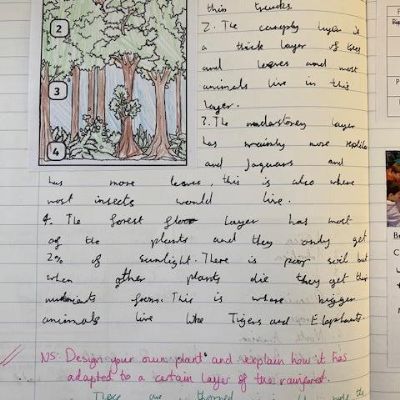 2
3
4
this trunks.
2. The canopy layer is
a thick layer of trees
and leaves and most
animals live in this
layer.
3. The understorey layer
has mainly more reptiles
and Jaguars and
has more leaves, this is also where
most insects would live.
4. The forest floor layer has most
of the plants and they only get
2% of sunlight. There is poor soil but
when other plants die they get their
nutrients from. This is where bigger
animals live like Tigers and Elephants.
NS: Design your own plant and explain how it has
adapted to a certain layer of the rainforest.